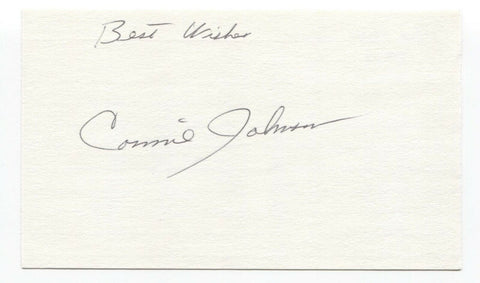 Best Wishes
Connie Johnson